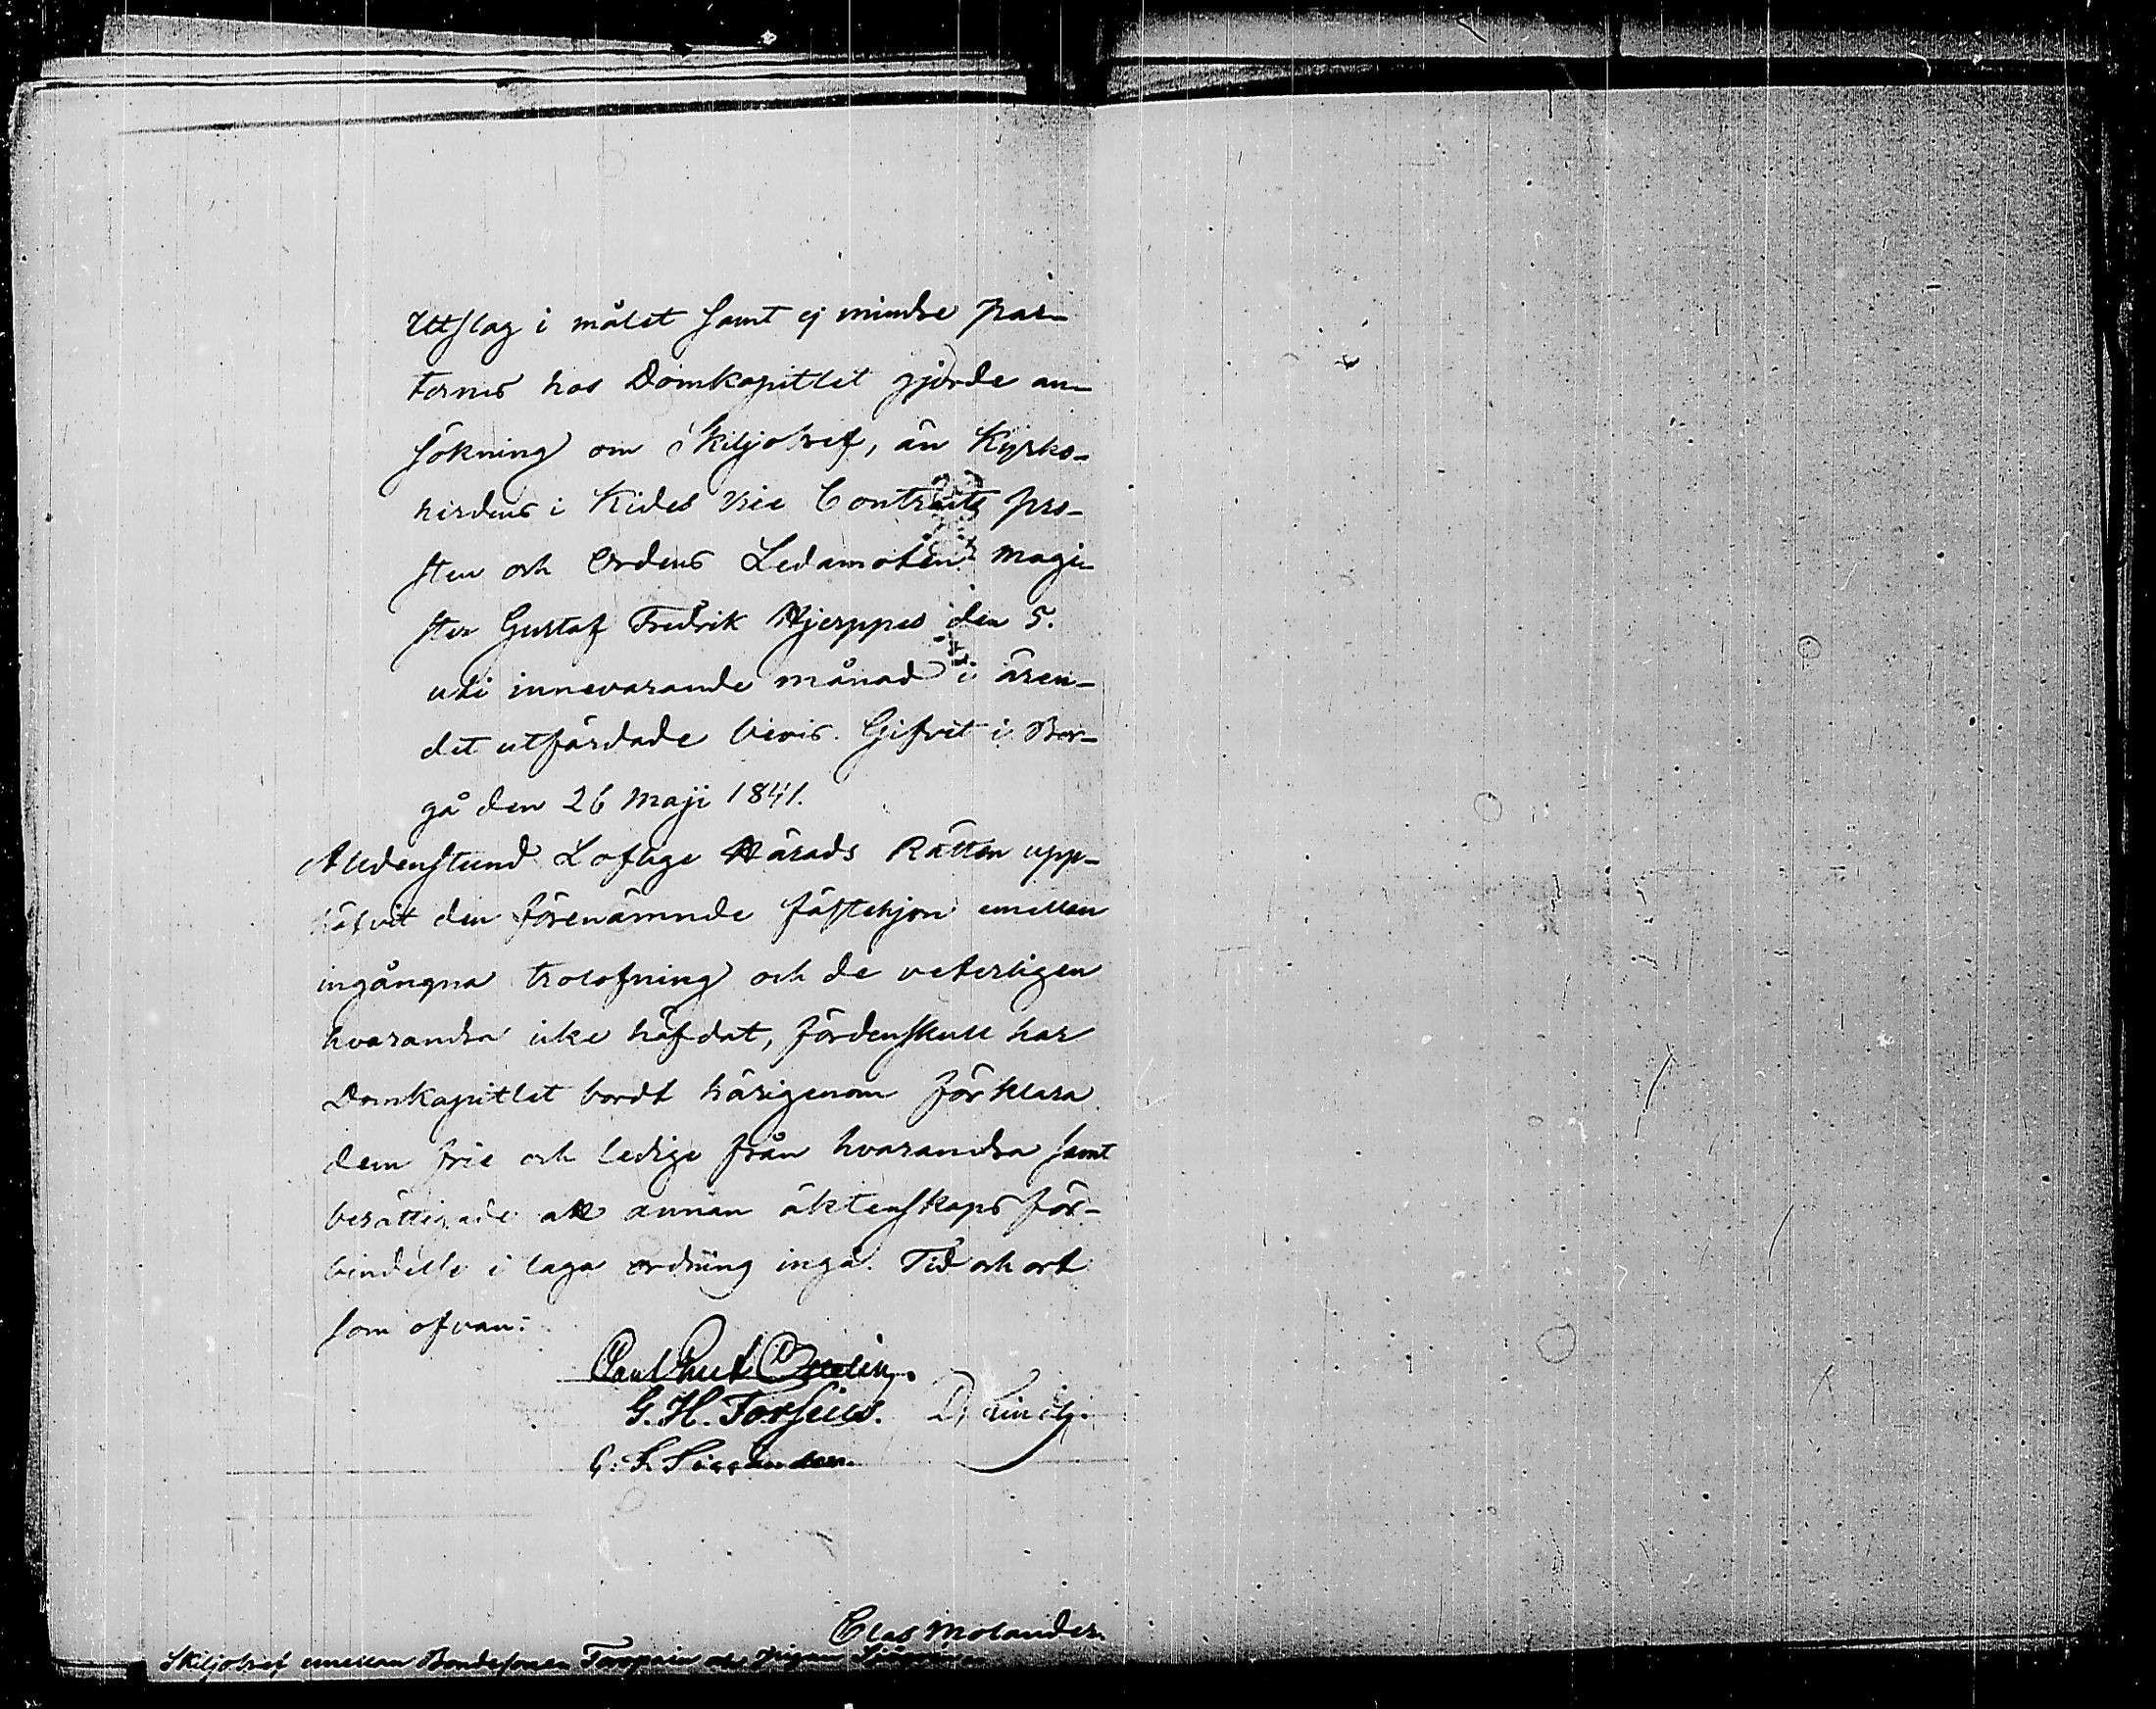 Utslag i målet samt ej mindre par-
ternes hos Domkapitlet gjorde an-
sökning om Skiljobref, än Kyrko-
herdens i Kides Vice Contracts pro-
sten och Ordens Ledamoten Magi-
ster Gustaf Fredrik Hjerppes den 5.
uti innevarande månad i ären-
det utfärdade bevis. Gifvet i Bor-
gå den 26 Maji 1841.
Alldenstund Lofliga Härads Rätten upp-
häfvit den förenämnde fästehjon emellan
ingångna trolofning och de veterligen
hvarandra icke häfdat, fördenskull har
Domkapitlet bordt härigenom förklara
dem frie och ledige från hvarandra samt
berättigade att annan äktenskaps för-
bindelse i laga ordning ingå. Tid och ort
som ofvan:
G. H. Forsius. D. Lindh.
Clas Molander.
Skiljobref emellan Bondesonen Toropain och Pigan